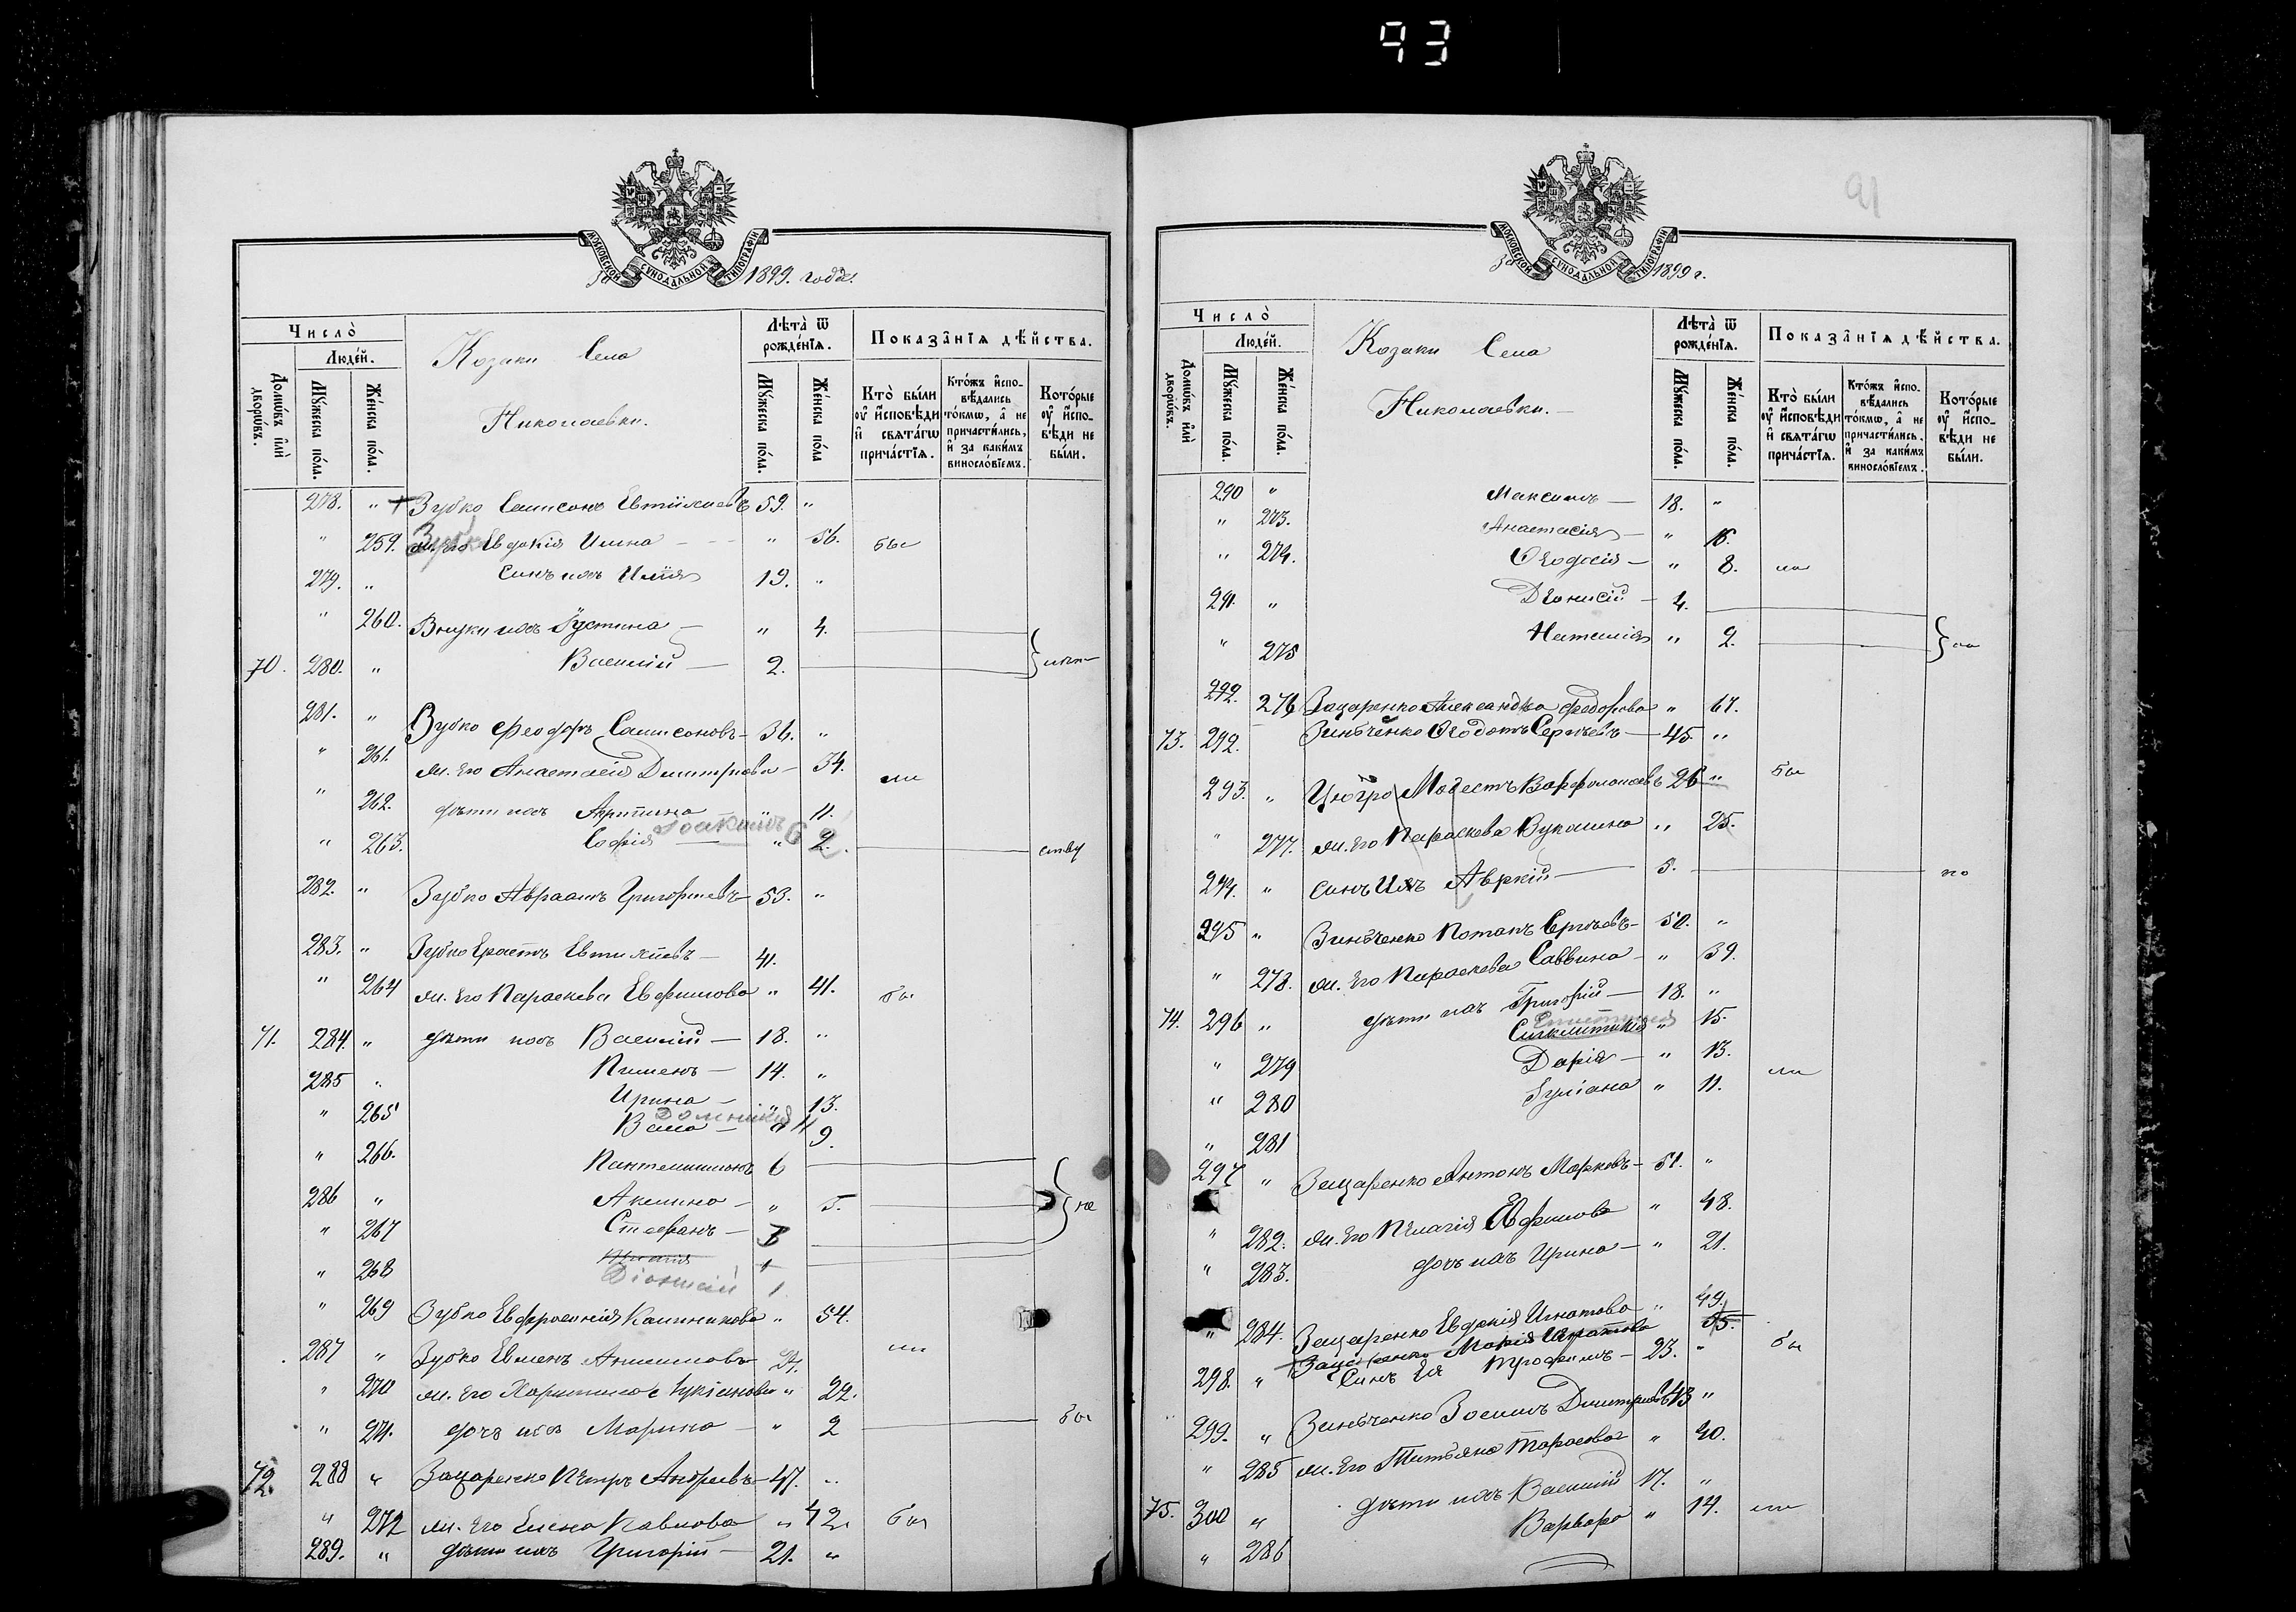 93
МОСКОВСКОЙ СѴНОДАЛЬНОЙ ТИПОГРАФІИ
За 1899. года.
Число̀
Людéй.
Домѡ́въ и҆лѝ дворѡ́въ.
Мꙋ́жеска по́ла.
Же́нска по́ла.
Козаки Села
Николаевки.
Лѣ̑та̀ ѿ рожде́нїѧ.
Мꙋ́жеска по́ла.
Же́нска по́ла
Показа̑нїѧ дѣ́йства.
Кто̀ бы́ли ᲂу҆ и҆сповѣ́ди и҆ свѧта́гѡ прича́стїѧ.
Кто́жъ и҆спо- вѣ́дались то́кмѡ, а҆ не причасти́лись, и҆ за каки́мъ винослѡ́вїемъ.
Кото́рые ᲂу҆ и҆спо- вѣ́ди не бы́ли.
278. " Зубко Самсонъ Евтихіевъ 59. "
" 259. ж. его Евдокія Ильина " 56. бы
279. " Сынъ ихъ Илія 19. "
" 260. Внуки ихъ Іустина — " 4.
70. 280. " Василій — 2.
281. " Зубко Феодоръ Самсоновъ — 36. "
" 261. ж. его Анастасія Димитріева — 34. ли
" 262. дѣти ихъ — " 11.
Іоакимъ 6
" 263. Софія " 2.
282. " Зубко Авраамъ Григорьевъ — 53. "
283. " Зубко Ерастъ Евтихіевъ — 41.
" 264 ж. его Параскева Евфимова " 41. бы
71. 284. " дѣти ихъ Василій — 18. "
285 " Пименъ — 14. "
" 265 Ирина — " 13.
Домникія 11
" 266. 9.
Пантелиимонъ 6
286 " Акилина — " 5. не
" 267 Стефанъ — 3
" 268
Діонисій 1
" 269 Зубко Евфросинія Калиникова " 54.
287 " Зубко Евменъ 24. ли
" 270 ж. его Харитина Лукіанова " 22.
" 271. дочь ихъ Марина — " 2 бы
72. 288 " Зацаренко Петръ Андреевъ — 47. "
" 272 ж. его Елена Павлова " 42. бы
289. " дѣти ихъ Григорій — 21. "
91
МОСКОВСКОЙ СѴНОДАЛЬНОЙ ТИПОГРАФІИ
За 1899 г.
Число̀
Людéй.
Домѡ́въ и҆лѝ дворѡ́въ.
Мꙋ́жеска по́ла.
Же́нска по́ла.
Козаки Села
Николаевки. —
Лѣ̑та̀ ѿ рожде́нїѧ.
Мꙋ́жеска по́ла.
Же́нска по́ла.
Показа̑нїѧ дѣ́йства.
Кто̀ бы́ли ᲂу҆ и҆сповѣ́ди и҆ свѧта́гѡ прича́стїѧ.
Кто́жъ и҆спо- вѣ́дались то́кмѡ, а҆ не причасти́лись, и҆ за каки́мъ винослѡ́вїемъ.
Кото́рые ᲂу҆ и҆спо- вѣ́ди не бы́ли.
290 " Максимъ — 18. "
" 273. Анастасія — "
" 274. Ѳеодосія — " 8. ли
291. " Діонисій — 4.
" 275 Наталія " 2.
292. 276 Зацаренко Александра Федорова " 67.
73. 292. Зинѣченко Ѳеодотъ Сергѣевъ — 45. "
293. " Модестъ Варфоломаевъ 26 " бы
" 277. ж. его Параскева Вуколина " 25.
294. " сынъ ихъ Аверкій — 5. не
295 " Зинѣченко Потапъ Сергѣевъ — 50. "
" 278. ж. его Параскева Саввина — " 39.
74. 296 " дѣти ихъ Григорій — 18. "
Сигклитикія " 15.
" 279 Дарія — " 13. ли
" 280 Іуліана " 11.
" 281
297 " Зацаренко Антонъ Марковъ — 51. "
" 282. ж. его Пелагія Евфимова " 48.
" 283. дочь ихъ Ирина — " 21.
" 284. Зацаренко Евдокія Игнатова " 49.
Зацаренко Марія Игнатова
298. " Сынъ ея Трофимъ — 23. " бы
299. " Зинѣченко Зосимъ Димитріевъ 43 "
" 285 ж. его Татіяна Тарасова " 40.
75. 300 " дѣти ихъ Василій 17. "
" 286 Варвара " 14. ли